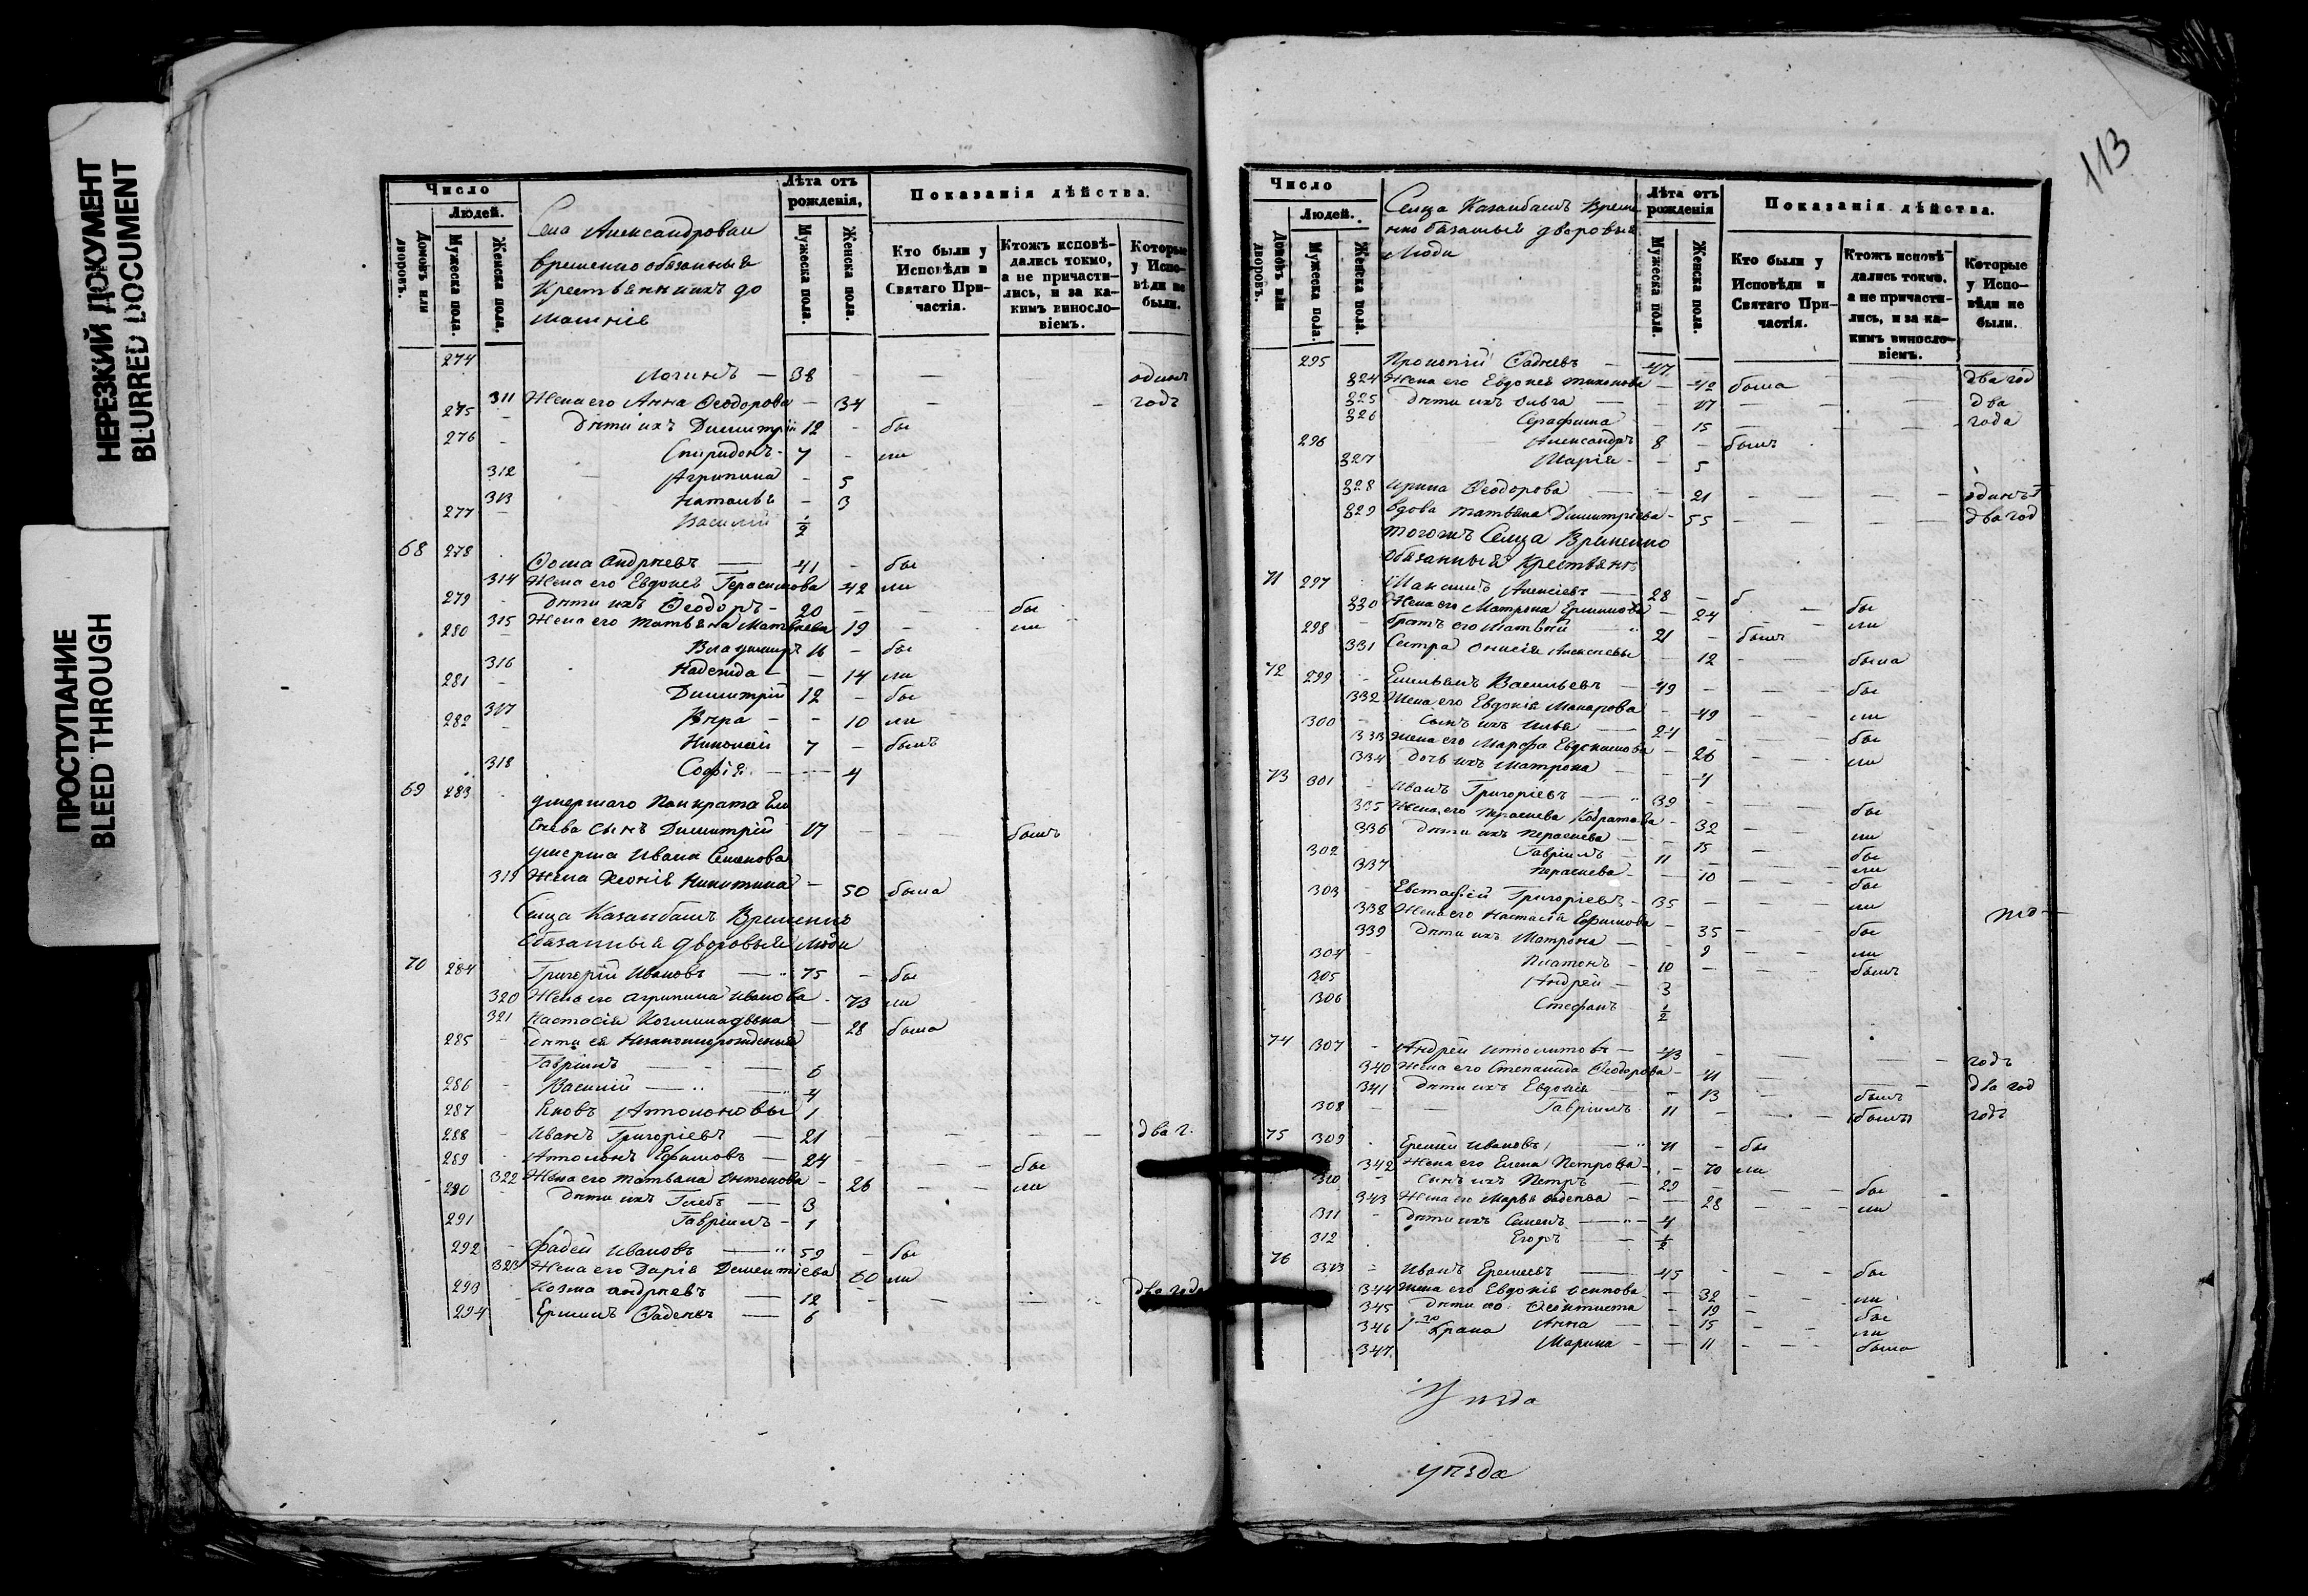 НЕРЕЗКИЙ ДОКУМЕНТ
BLURRED DOCUMENT
ПРОСТУПАНИЕ
BLEED THROUGH
Число
Людей.
Домовъ или дворовъ.
Мужеска пола.
Женска пола.
Села Александровки
временнообязанныя
Крестьянъ и ихъ до
машнія
Лѣта отъ рожденія,
Мужеска пола.
Женска пола.
Показанія дѣйства.
Кто были у Исповѣди и Святаго Причастія.
Ктожъ исповѣдались токмо, а не причастились, и за какимъ винословіемъ.
Которые у Исповѣди не были.
274 Логинъ — 38 — — — одинъ
311 Жена его Анна Ѳеодорова — 34 — — годъ
275 Дѣти ихъ Димитрій 12 - бы
276 Спиридонъ - 7 - ли
312 Агрипина - 5
313 Наталья - 3
277 Василій 1/2
68 278 Ѳома Андреевъ — 41 - бы
314 Жена его Евдокея Герасимова 42 ли
279 Дѣти ихъ Ѳеодоръ - 20 - - бы
315 Жена его Татьяна Матвѣева 19 - ли
280 Владимиръ 16 - бы
316 Надежда - - 14 ли
281 Димитрій 12 - бы
317 Вѣра - - 10 ли
282 Николай 7 - былъ
318 Софія - — 4
69 283 умершаго Панкрата Ели
сеева сынъ Димитрій 17 - - - былъ
умерша Ивана Семенова
319 Жена Хеонія Никитина - 50 была
Сельца Казанбашъ Временно
обязанныя дворовыя люди
70 284 Григорій Ивановъ — 75 - бы
320 Жена его Агрипина Иванова - 73 ли
321 Настасія - 28 была
285 Дѣти ея Незаконнорожденныя
Гавріилъ — - — 6
286 Василій — 4
287 Яковъ 1
288 - Иванъ Григоріевъ — 21 - - - - два г.
289 Ефимовъ — 24 - - - бы
322 Жена его Татьяна Антонова - 26 - - ли
290 Дѣти ихъ Глебъ — 3
291 Гавріилъ - 1
292 - Фадей Ивановъ — 59 - бы
323 Жена его Дарія Дементіева 60 ли
293 Козма Андреевъ — 12 - - - два года
294 Ермилъ Фадеевъ — 6
113
Число
Людей.
Домовъ или дворовъ.
Мужеска пола.
Женска пола.
Сельца Казанбашъ Време
ннобязаныя дворовыя
Люди
Лѣта отъ рожденія
Мужеска пола.
Женска пола.
Показанія дѣйства.
Кто были у Исповѣди и Святаго Причастія.
Ктожъ исповѣдались токмо, а не причастились, и за какимъ винословіемъ.
Которые у Исповѣди не были.
295 Прокопій Фадеевъ — 47 два год
324 Жена его Евдокея Тихонова - 42 была - два
325 Дѣти ихъ Ольга — - 17 - - года
326 Серафима - 15 - -
296 Александръ 8 - былъ
327 Марія - - 5
328 Ирина Ѳеодорова — - 21 - - - - одинъ г
329 Вдова Татьяна Димитріева - 55 - - - - два год
Тогожъ Сельца Временно
обязанныя Крестьянъ
71 297 Максимъ Алексіевъ — 28 - б
330 Жена его Матрона - 24 - бы
298 братъ его Матвѣй - 21 - былъ ли
331 Сестра Онисія Алексѣевы - 12 - - была
72 299 Емельянъ Васильевъ — 49 - - бы
332 Жена его Евдокія Макарова - 49 - - ли
300 - Сынъ ихъ Илья — 24 - - бы
333 Жена его Марѳа Евдокимова - 26 - - ли
334 Дочь ихъ Матрона - - 4
73 301 - Иванъ Григоріевъ — 39 - - бы
335 Жена его Парасцева - 32 - - ли
336 Дѣти ихъ Парасцева — - 15 - бы
302 Гавріилъ - 11 - - ли
337 Парасцева - - 10 - - бы
303 - Евстафій Григоріевъ - 35 - - ли
338 Жена его Настасія Ефимова - 35 - - бы
339 Дѣти ихъ Матрона - - 9 - ли
304 Платонъ - 10 - - былъ
305 Андрей - 3
306 Стефанъ 1/2
74 307 - Андрей Ипполитовъ — 43 - - - годъ
340 Жена его Степанида Ѳеодорова - 41 - - два год
341 Дѣти ихъ Евдокія — - 13 - былъ
308 - - Гавріилъ 11 - - былъ годъ
75 309 Еремей Ивановъ — 71 - бы
342 Жена его Елена Петрова - - 70 ли
310 - Сынъ ихъ Петръ — 29 - - бы
343 Жена его Марья Фадеева - - 28 - - ли
311 - Дѣти ихъ Семенъ — 4
312 Егоръ — 1/2
76 313 - Иванъ Еремеевъ — 45 - - бы
344 Жена его Евдокія Осипова - 32 - - ли
345 Дѣти его Ѳеоктиста - 19 - - бы
346 1го брака Анна — - 15 - - ли
347 Марина - - 11 - - - была
Уѣзда
уѣзда